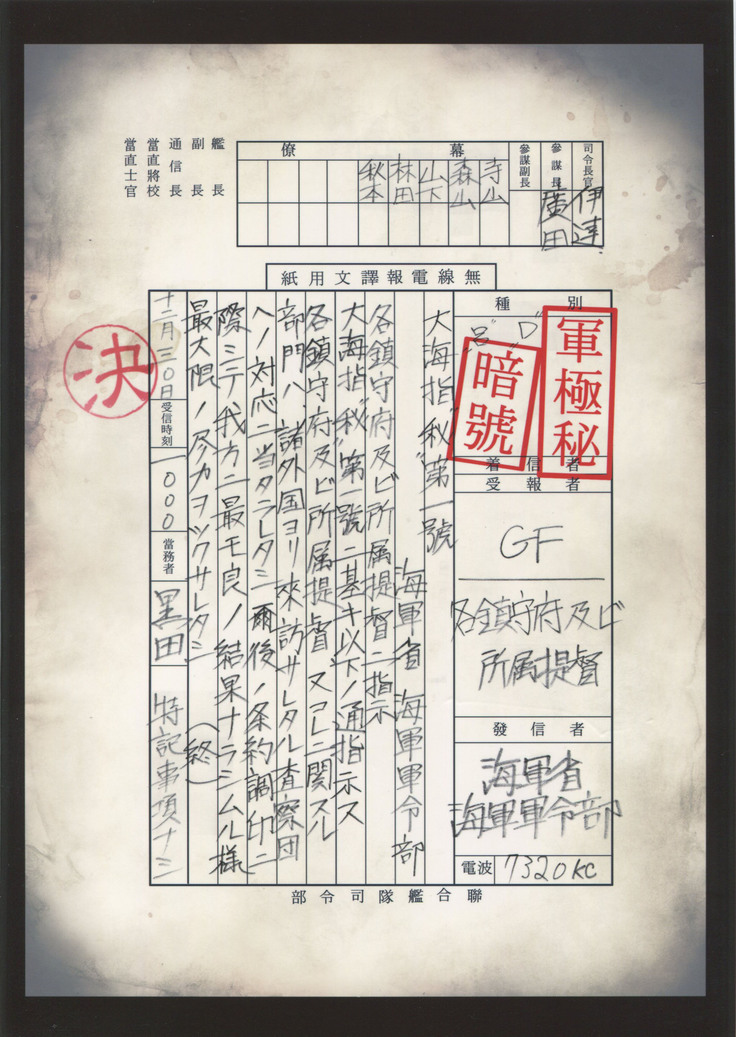 司令長官
伊達
參謀長
廣田
參謀副長
幕僚
寺山
森山
山下
林田
秋本
艦長
副長
通信長
當直將校
當直士官
無線電報譯文用紙
種別
軍極秘
暗號
"D"
着信者
受報者
GF
各鎮守府及ビ
所属提督
發信者
海軍省
海軍軍令部
電波
7320KC
大海指"秘"第一號
海軍省 海軍軍令部
各鎮守府及ビ所属提督ニ指示
大海指"秘"第一號ニ基キ以下ノ通指示ス
各鎮守府及ビ所属提督 又コレニ関スル
部門ハ、諸外国ヨリ來訪サレタル査察団
ヘノ対応ニ当タラレタシ爾後ノ条約調印ニ
際シテ我方ニ最モ良ノ結果ナラシムル様
最大限ノ尽力ヲツクサレタシ
(終)
十二月三〇日
受信時刻
一〇〇〇
當務者
黒田
特記事項ナシ
決
聯合艦隊司令部